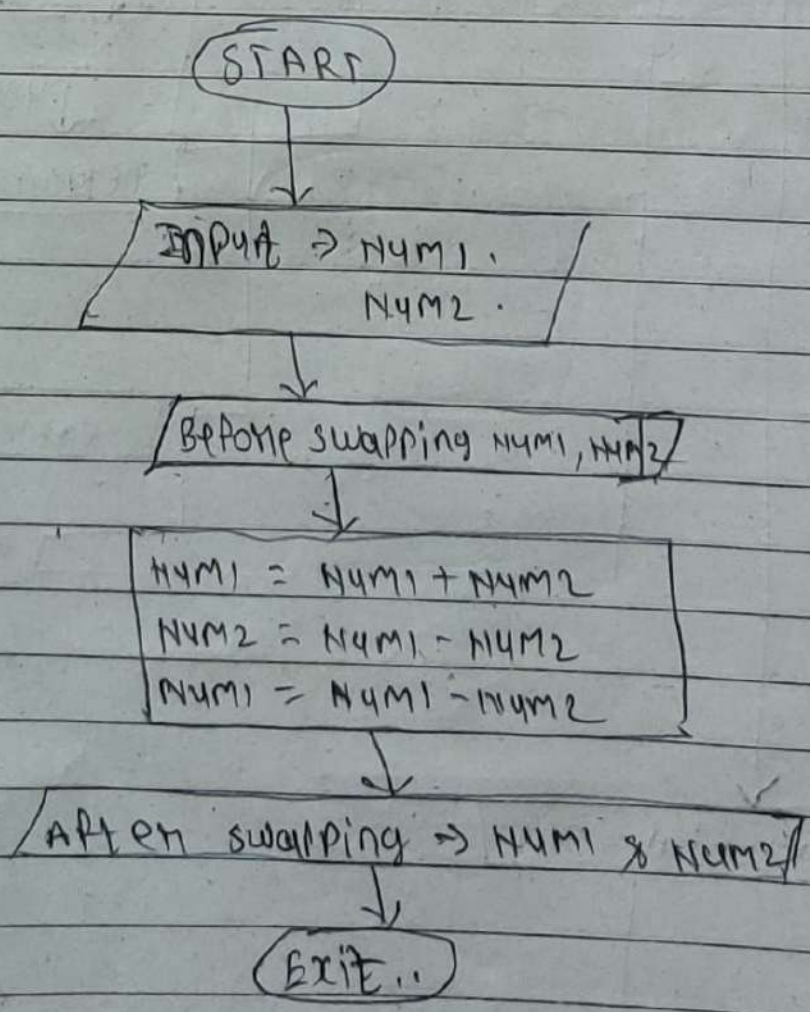 START
Input => NUM1.
NUM2.
Before swapping NUM1, NUM2
NUM1 = NUM1 + NUM2
NUM2 = NUM1 - NUM2
NUM1 = NUM1 - NUM2
After swapping => NUM1 & NUM2
Exit..